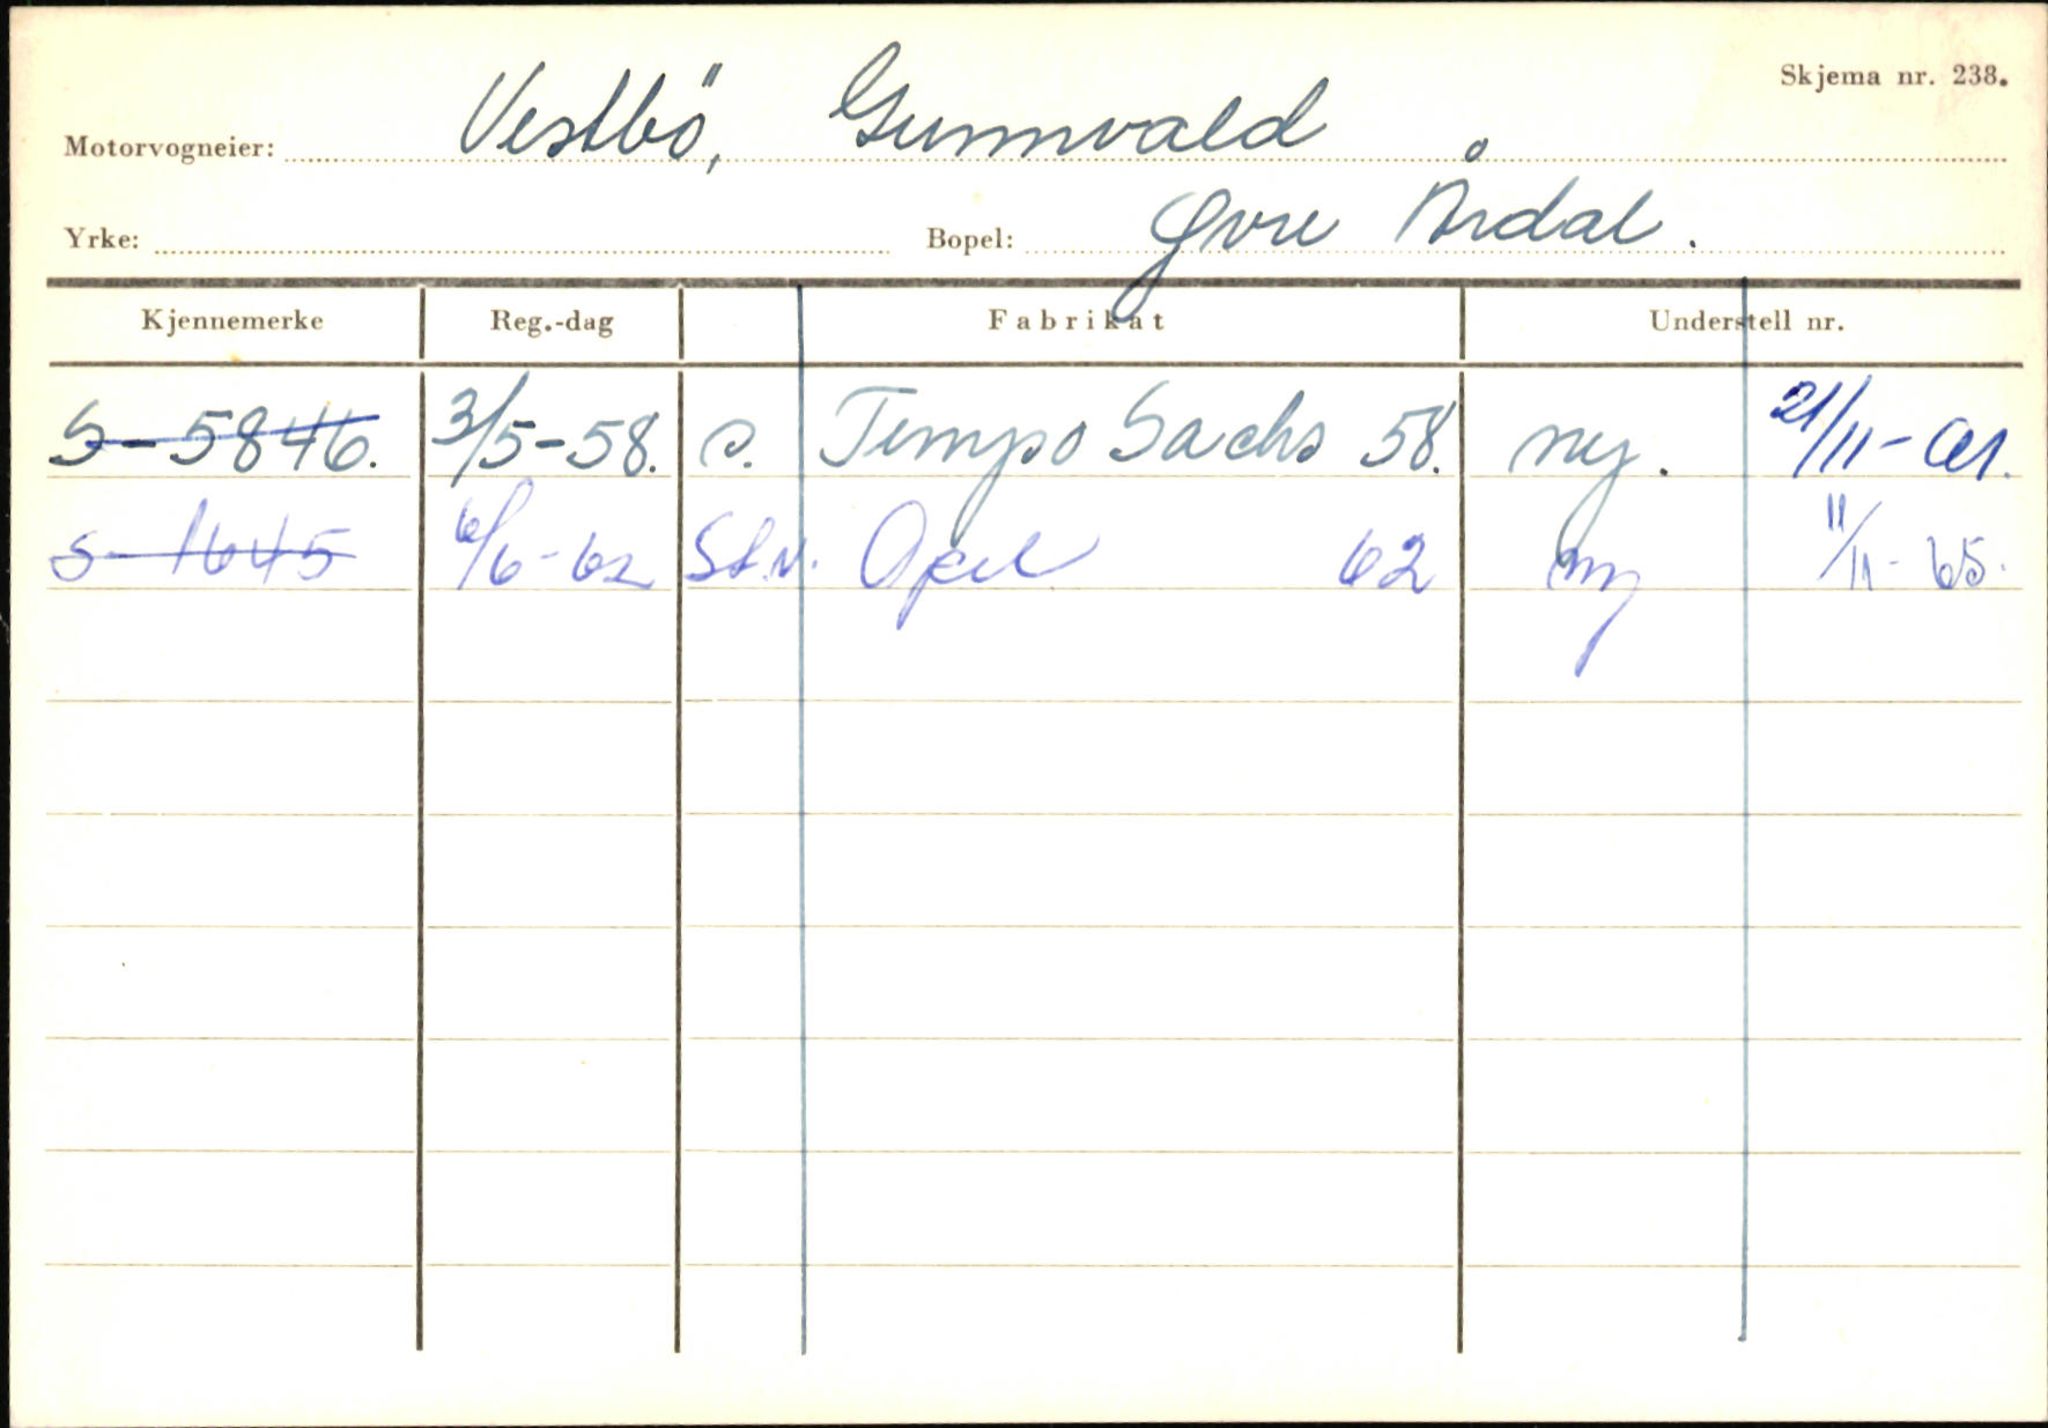 Skjema nr. 238.
Motorvogneier: Vestbö, Gunnvald
Yrke: Bopel: Øvre Årdal.
Kjennemerke Reg.-dag Fabrikat Understell nr.
S-5846. 3/5-58. s. Tempo Sachs 58. ny. 21/11-61.
S-1645 6/6-62 St.v. Opel 62 ny 11/11-65.